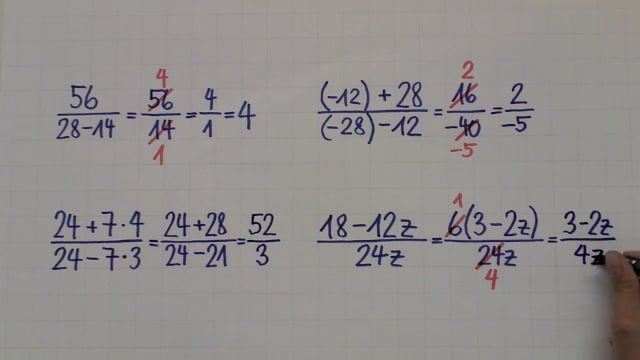 56/(28-14) = 56/14 = 4/1 = 4
4
1
((-12) + 28)/((-28) - 12) = 16/-40 = 2/-5
2
-5
(24 + 7·4)/(24 - 7·3) = (24+28)/(24-21) = 52/3
(18 - 12z)/24z = 6(3-2z)/24z = (3-2z)/4z
1
4